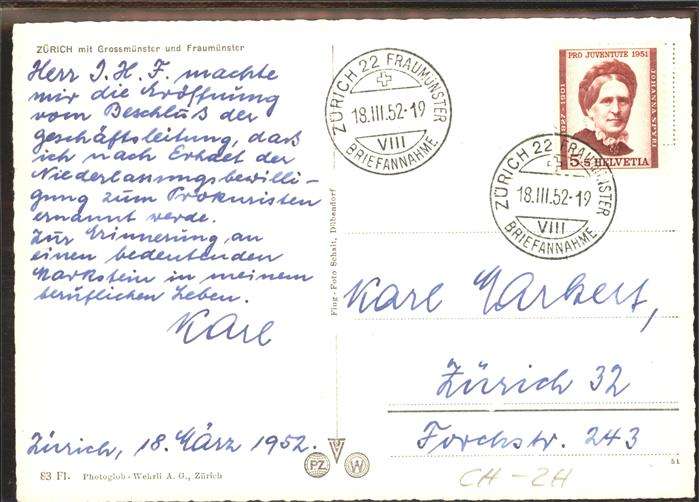 ZÜRICH mit Grossmünster und Fraumünster
Herr J. H. F. machte
mir die Eröffnung
vom Beschluß der
Geschäftsleitung, daß
ich nach Erhalt der
Niederlassungsbewilli-
gung zum Prokuristen
ernannt werde.
Zur Erinnerung an
einen bedeutenden
Markstein in meinem
beruflichen Leben.
Karl
Zürich, 18. März 1952.
83 Fl. Photoglob-Wehrli A. G., Zürich
Flug-Foto Schait, Dübendorf
PZ
W
ZÜRICH 22 FRAUMÜNSTER
18.III.52-19
VIII
BRIEFANNAHME
PRO JUVENTUTE 1951
JOHANNA SPYRI
1827-1901
5+5 HELVETIA
ZÜRICH 22 FRAUMÜNSTER
18.III.52-19
VIII
BRIEFANNAHME
Karl Markert,
Zürich 32
Forchstr. 243
51
CH-ZH